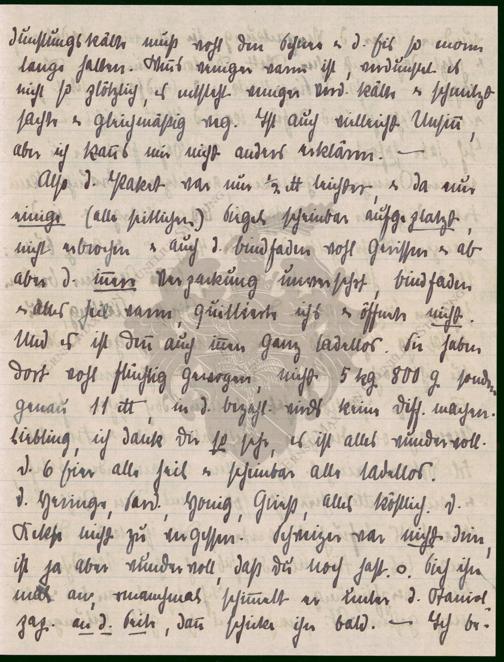 dunstungskälte muß wohl den Schnee u. d. Eis so enorm
lange halten. Wenns weniger warm ist, verdunstet es
nicht so plötzlich, es entsteht weniger Verd. kälte u. schmilzt
sachte u. gleichmäßig weg. Ist auch vielleicht Unsinn,
aber ich kanns mir nicht anders erklären. —
Also d. Paket war nur ½ ℔ leichter, u. da nur
einige (alle seitlichen) Siegel scheinbar aufgeplatzt,
nicht erbrochen u. auch d. Bindfaden wohl gerissen u. ab
aber d. innere Verpackung unversehrt, Bindfaden
u. alles heil waren, quittierte ichs u. öffnete nicht.
Und es ist denn auch innen ganz tadellos. Sie haben
dort wohl flüchtig gewogen, nicht 5 kg 800 g sondern
genau 11 ℔, in d. bezahl. wirds keine Diff. machen.
Liebling, ich dank Dir so sehr, es ist alles wundervoll.
d. 6 Eier alle heil u. scheinbar alle tadellos.
d. Heringe, Sard., Honig, Grieß, alles köstlich. d.
Kekse nicht zu vergessen. Schweizer war nicht drin,
ist ja aber wundervoll, daß Du noch hast. o. Sieh ihn
mal an, manchmal schimmelt er unter d. Staniol-
pap. an d. Seite, dann schicke ihn bald. — Ich be-